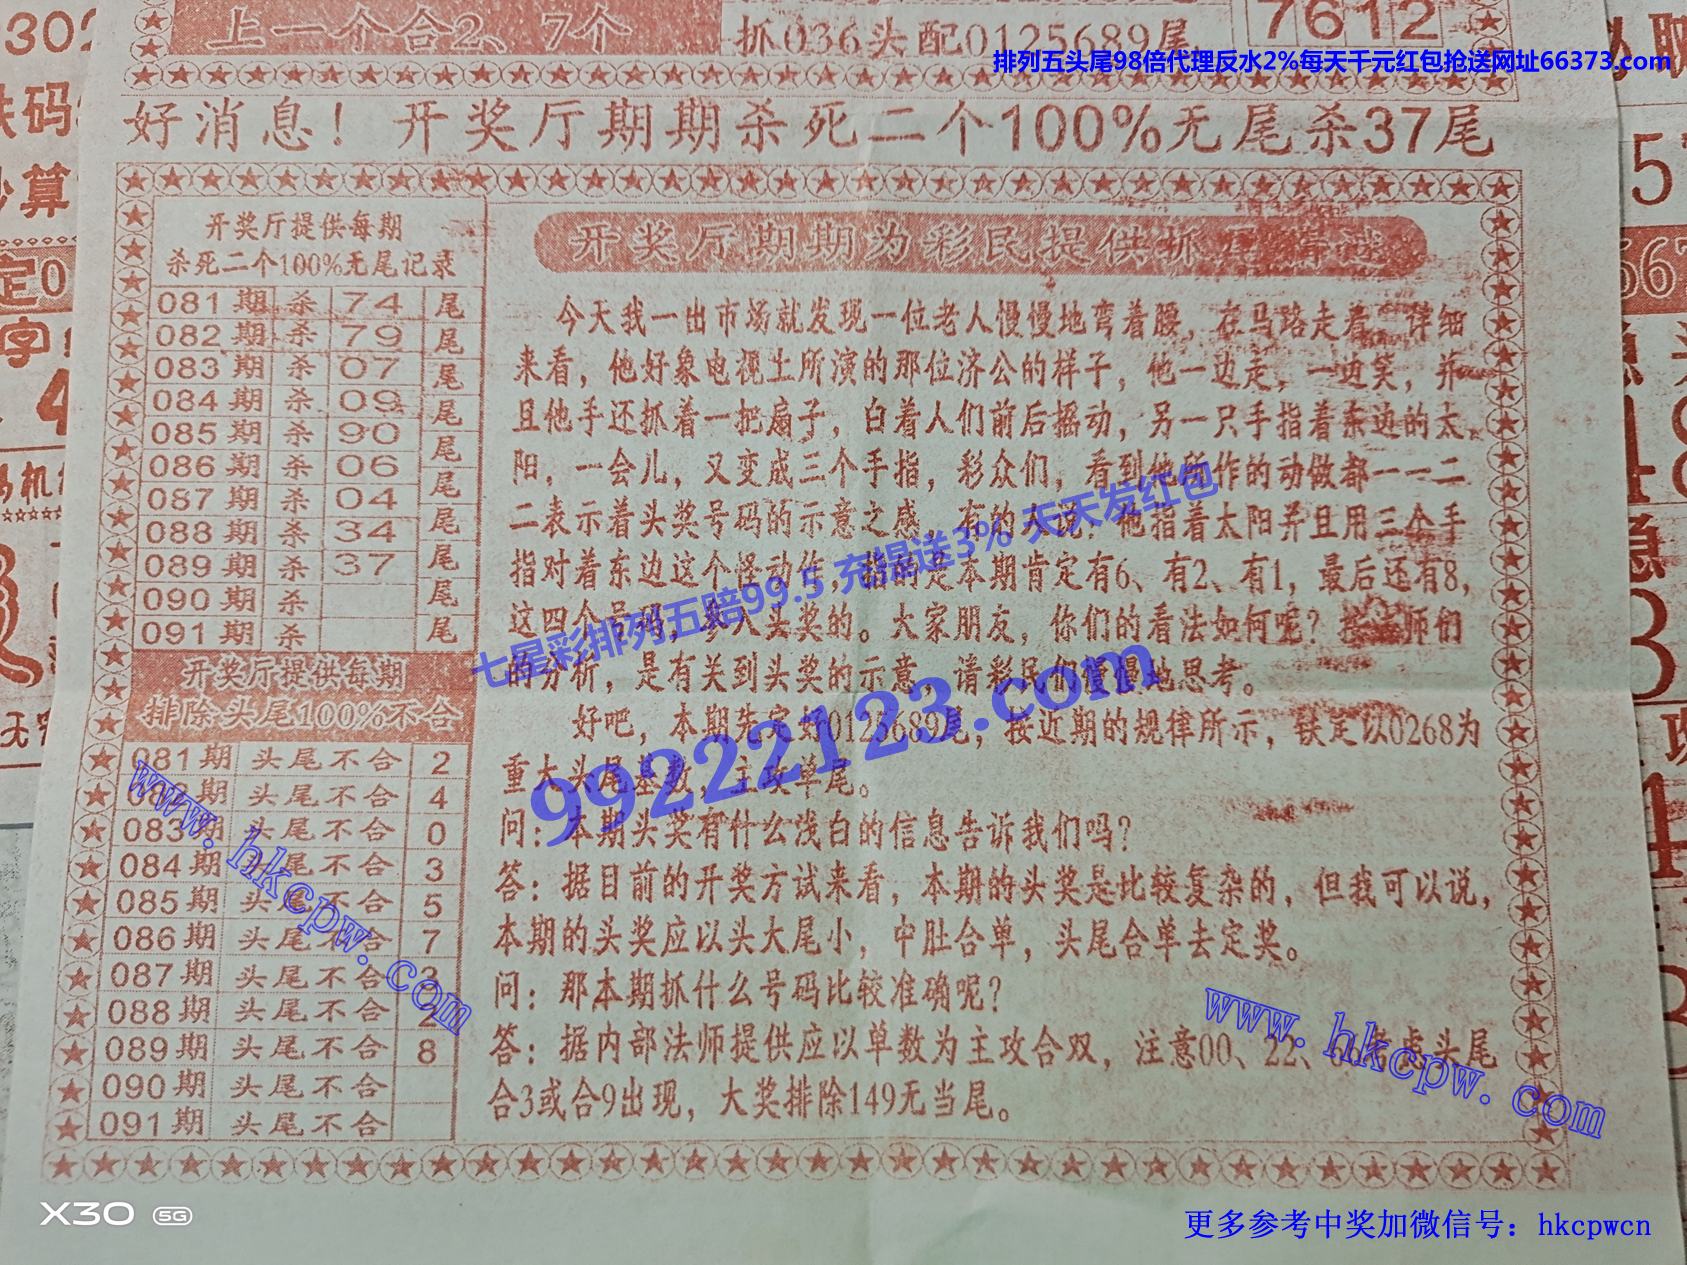 上一个合2、7个
抓036头配0125689尾
7612
排列五头尾98倍代理反水2%每天千元红包抢送网址66373.com
好消息！开奖厅期期杀死二个100%无尾杀37尾
开奖厅提供每期
杀死二个100%无尾记录
081期 杀 74 尾
082期 杀 79 尾
083期 杀 07 尾
084期 杀 09 尾
085期 杀 90 尾
086期 杀 06 尾
087期 杀 04 尾
088期 杀 34 尾
089期 杀 37 尾
090期 杀 尾
091期 杀 尾
开奖厅提供每期
排除头尾100%不合
081期 头尾不合 2
082期 头尾不合 4
083期 头尾不合 0
084期 头尾不合 3
085期 头尾不合 5
086期 头尾不合 7
087期 头尾不合 3
088期 头尾不合 2
089期 头尾不合 8
090期 头尾不合
091期 头尾不合
开奖厅期期为彩民提供抓
今天我一出市场就发现一位老人慢慢地弯着腰，在马路走着，详细
来看，他好象电视土所演的那位济公的样子，他一边走，一边笑，并
且他手还抓着一把扇子，白着人们前后摇动，另一只手指着东边的太
阳，一会儿，又变成三个手指，彩众们，看到他所作的动做都一一二
二表示着头奖号码的示意之感，有的人说，他指着太阳并且用三个手
指对着东边这个怪动作，指的是本期肯定有6、有2、有1，最后还有8，
这四个号码，杀入头奖的。大家朋友，你们的看法如何呢？按法师们
的分析，是有关到头奖的示意，请彩民们慢慢地思考。
好吧，本期先定好0125689尾，按近期的规律所示，铁定以0268为
重大头尾基数，主攻单尾。
问：本期头奖有什么浅白的信息告诉我们吗？
答：据目前的开奖方试来看，本期的头奖是比较复杂的，但我可以说，
本期的头奖应以头大尾小，中肚合单，头尾合单去定奖。
问：那本期抓什么号码比较准确呢？
答：据内部法师提供应以单数为主攻合双，注意00、22、考虑头尾
合3或合9出现，大奖排除149无当尾。
七星彩排列五赔99.5 充提送3% 天天发红包
99222123.com
www.hkcpw.com
www.hkcpw.com
X30 5G
更多参考中奖加微信号：hkcpwcn